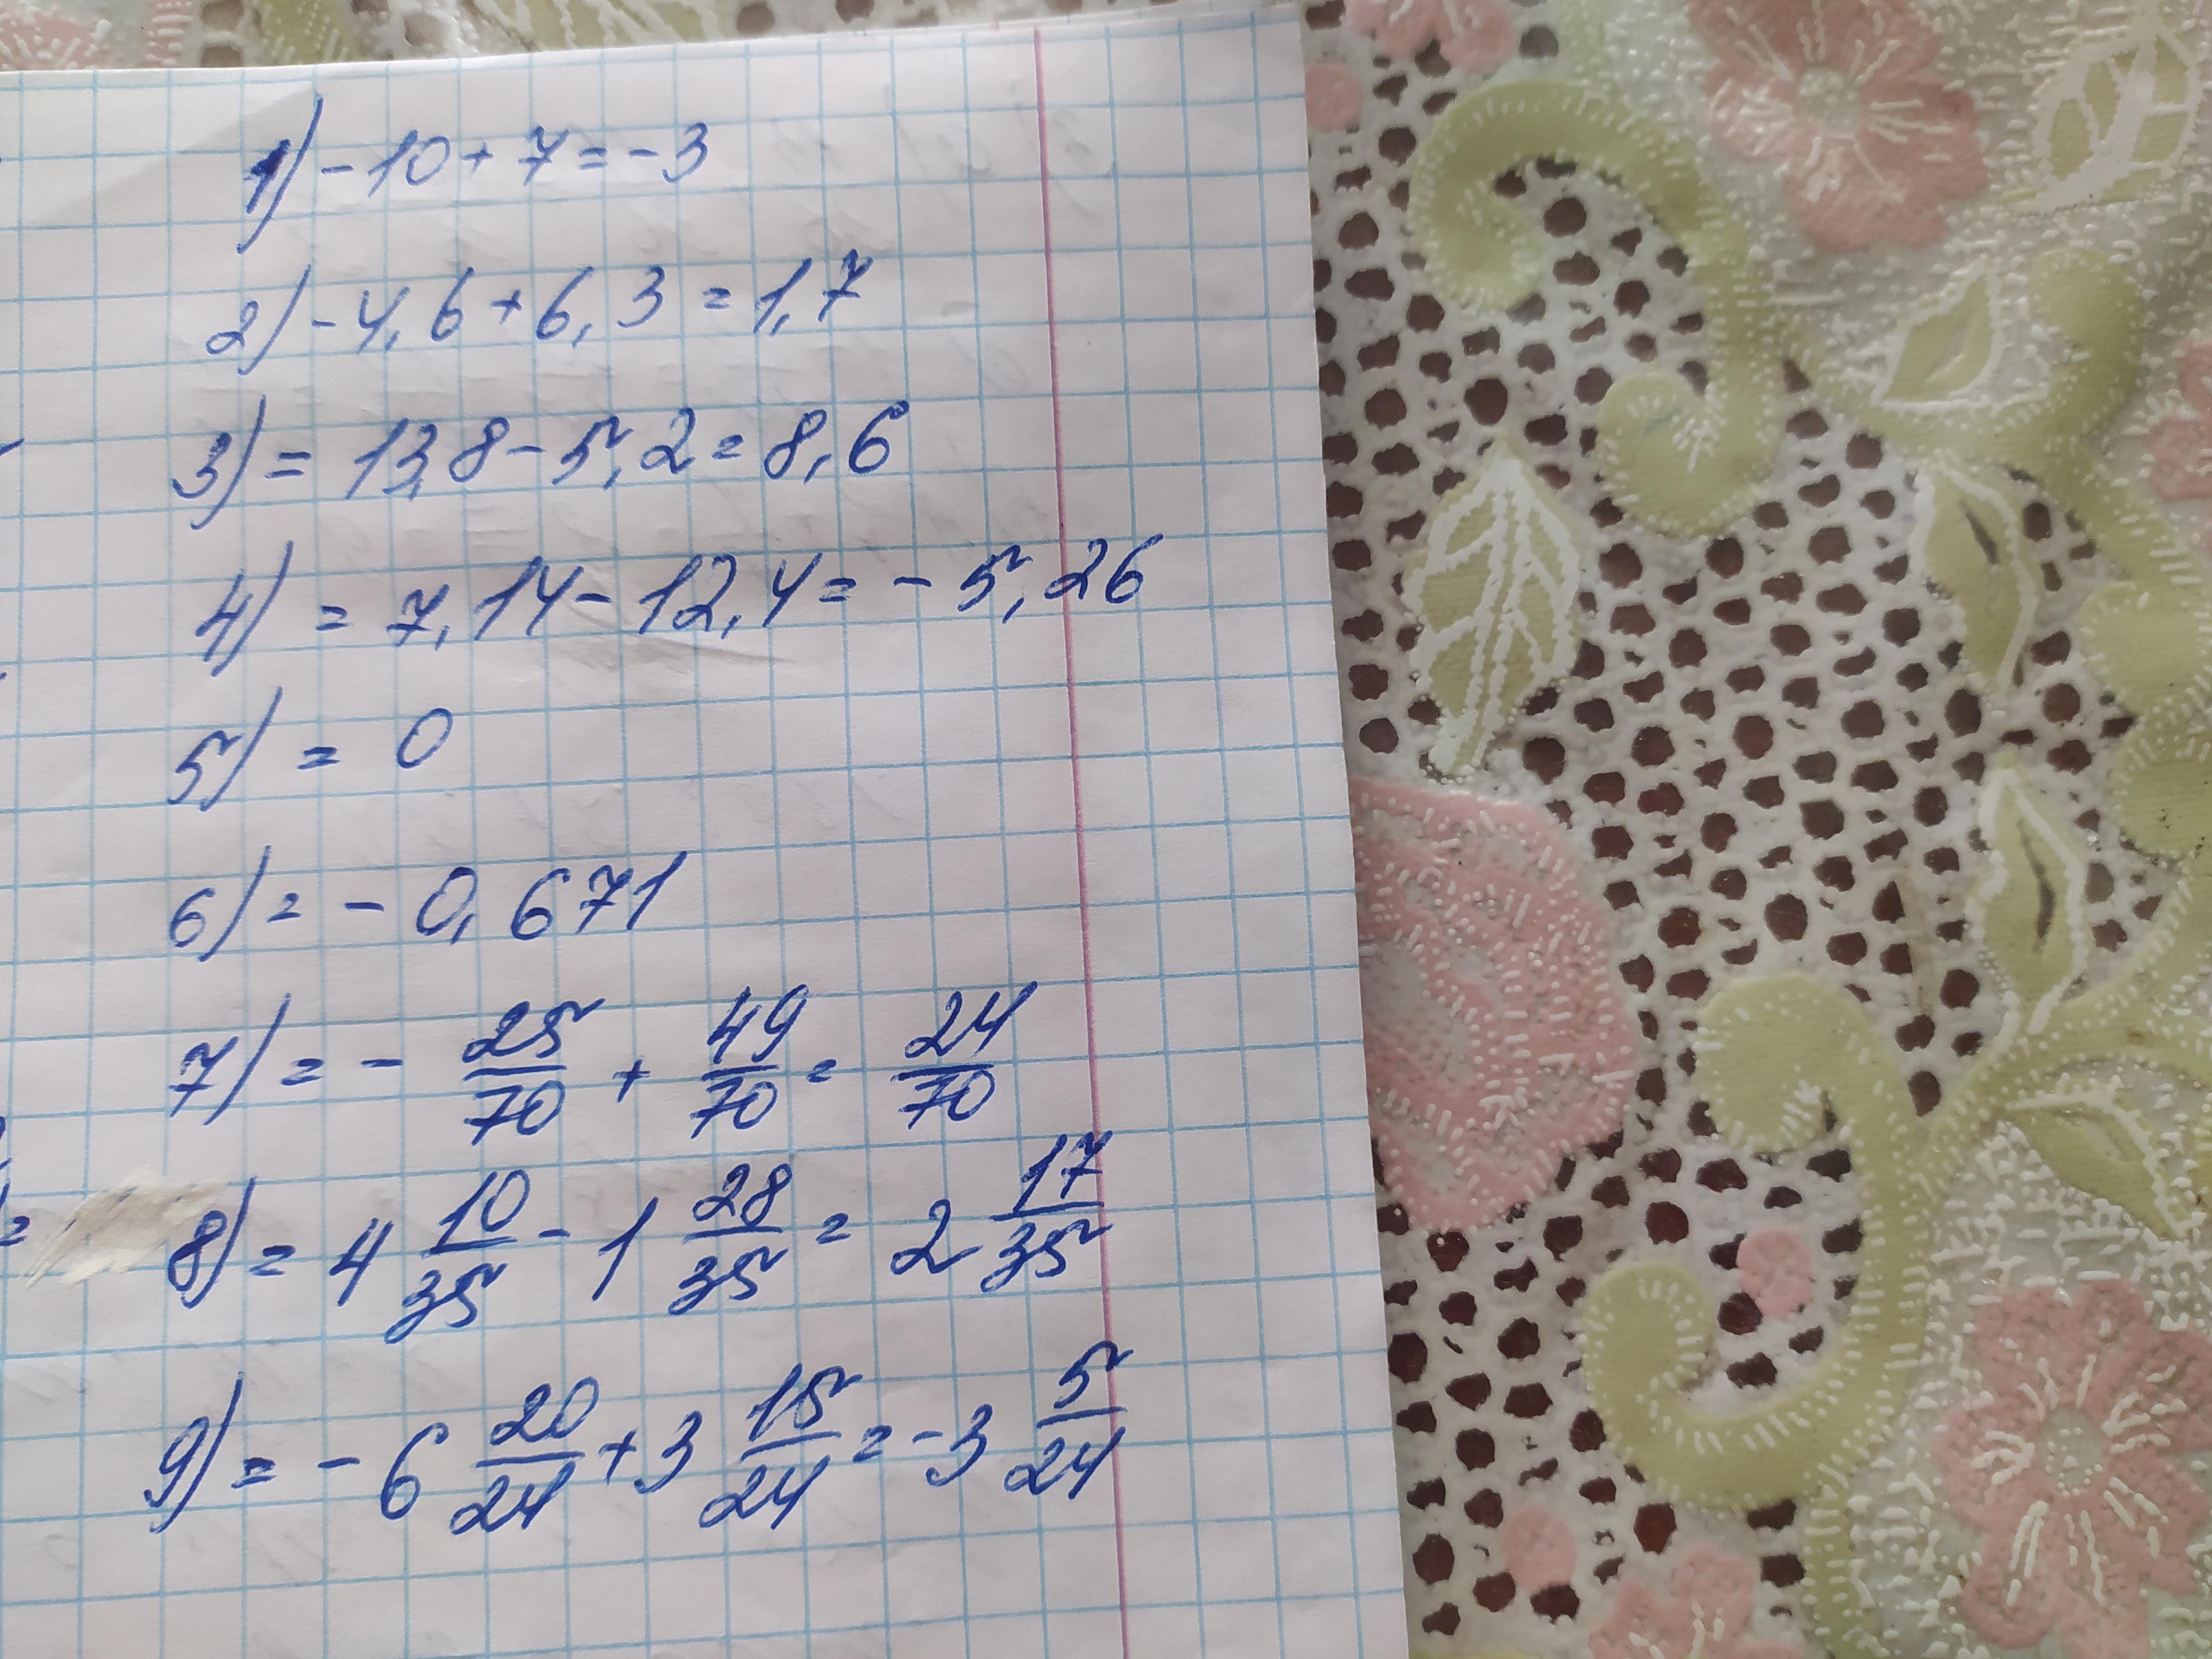 1) -10+7=-3
2) -4,6+6,3=1,7
3) = 13,8-5,2=8,6
4) = 7,14-12,4=-5,26
5) = 0
6) = -0,671
7) = - 25/70 + 49/70 = 24/70
8) = 4 10/35 - 1 28/35 = 2 17/35
9) = -6 20/24 + 3 15/24 = -3 5/24